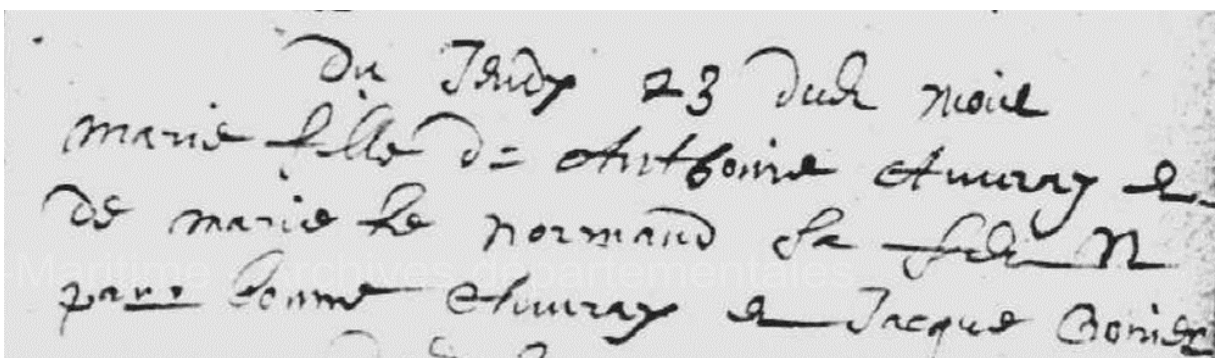 du Jeudy 23 dud mois
marie fille de Anthoine Auvray et
de marie le normand sa fe N
par bonne Auvray et Jacque
Maritime - Archives départementales